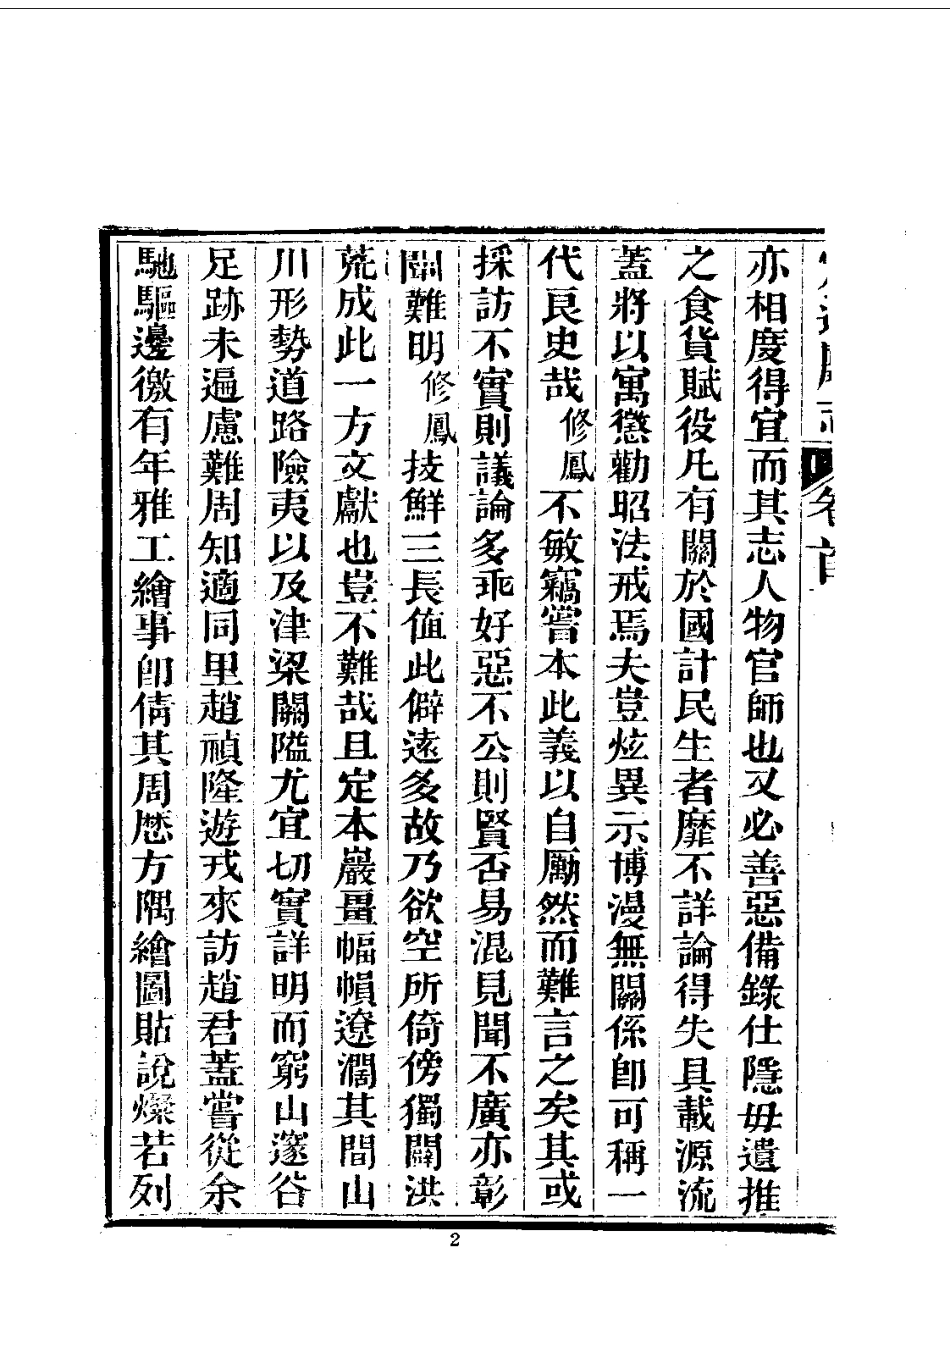 卷首
亦相度得宜而其志人物官師也又必善惡備錄仕隱毋遺推
之食貨賦役凡有關於國計民生者靡不詳論得失具載源流
蓋將以寓懲勸昭法戒焉夫豈炫異示博漫無關係卽可稱一
代良史哉修鳳不敏竊嘗本此義以自勵然而難言之矣其或
採訪不實則議論多乖好惡不公則賢否易混見聞不廣亦彰
闡難明修鳳技鮮三長值此僻遠多故乃欲空所倚傍獨闢洪
荒成此一方文獻也豈不難哉且定本巖畺幅幀遼濶其間山
川形勢道路險夷以及津梁關隘尤宜切實詳明而窮山邃谷
足跡未遍慮難周知適同里趙禎隆遊戎來訪趙君蓋嘗從余
馳驅邊徼有年雅工繪事卽倩其周歷方隅繪圖貼說燦若列
2